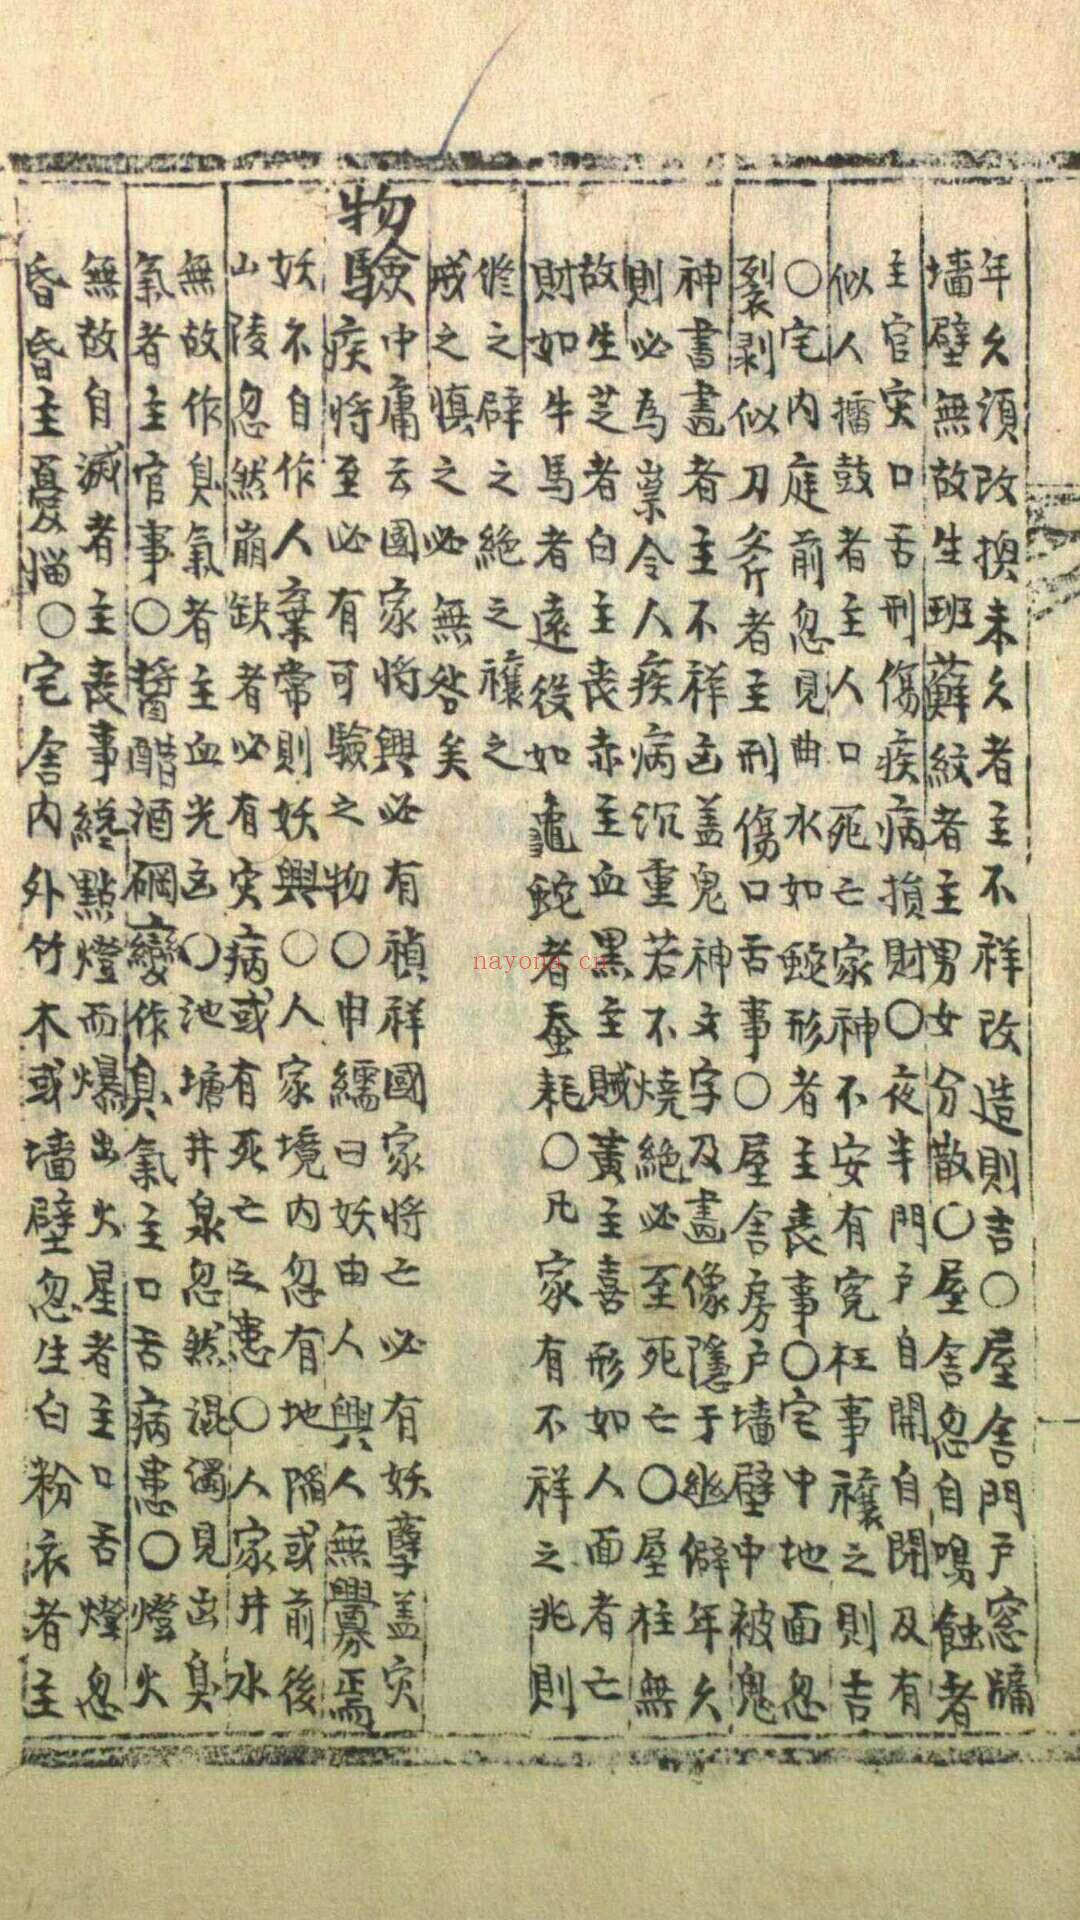 年久須改換未久者主不祥改造則吉○屋舍門戶窓牖
墻壁無故生班蘚紋者主男女分散○屋舍忽自鳴蝕者
主官灾口舌刑傷疾病損財○夜半門戶自開自閉及有
似人擂鼓者主人口死亡家神不安有寃枉事禳之則吉
○宅內庭前忽見曲水如蛇形者主喪事○宅中地面忽
裂剥似刀斧者主刑傷口舌事○屋舍房戶墻壁中被鬼
神書畫者主不祥凶盖鬼神文字及畫像隱于幽僻年久
則必為祟令人疾病沉重若不燒絕必至死亡○屋柱無
故生芝者白主喪赤主血黑主賊黃主喜形如人面者亡
財如牛馬者遠役如龜蛇者蚕耗○凡家有不祥之兆則
修之辟之絕之禳之
戒之慎之必無咎矣
物驗中庸云國家將興必有禎祥國家將亡必有妖孽盖灾
疾將至必有可驗之物○申繻曰妖由人興人無舋焉
妖不自作人棄常則妖興○人家境內忽有地陷或前後
山陵忽然崩缺者必有灾病或有死亡之患○人家井水
無故作臭氣者主血光凶○池塘井泉忽然混濁見出臭
氣者主官事○醬醋酒碙變作臭氣主口舌病患○燈火
無故自滅者主喪事纔點燈而爆出火星者主口舌燈忽
昏昏主憂惱○宅舍內外竹木或墻壁忽生白粉衣者主
nayona.cn